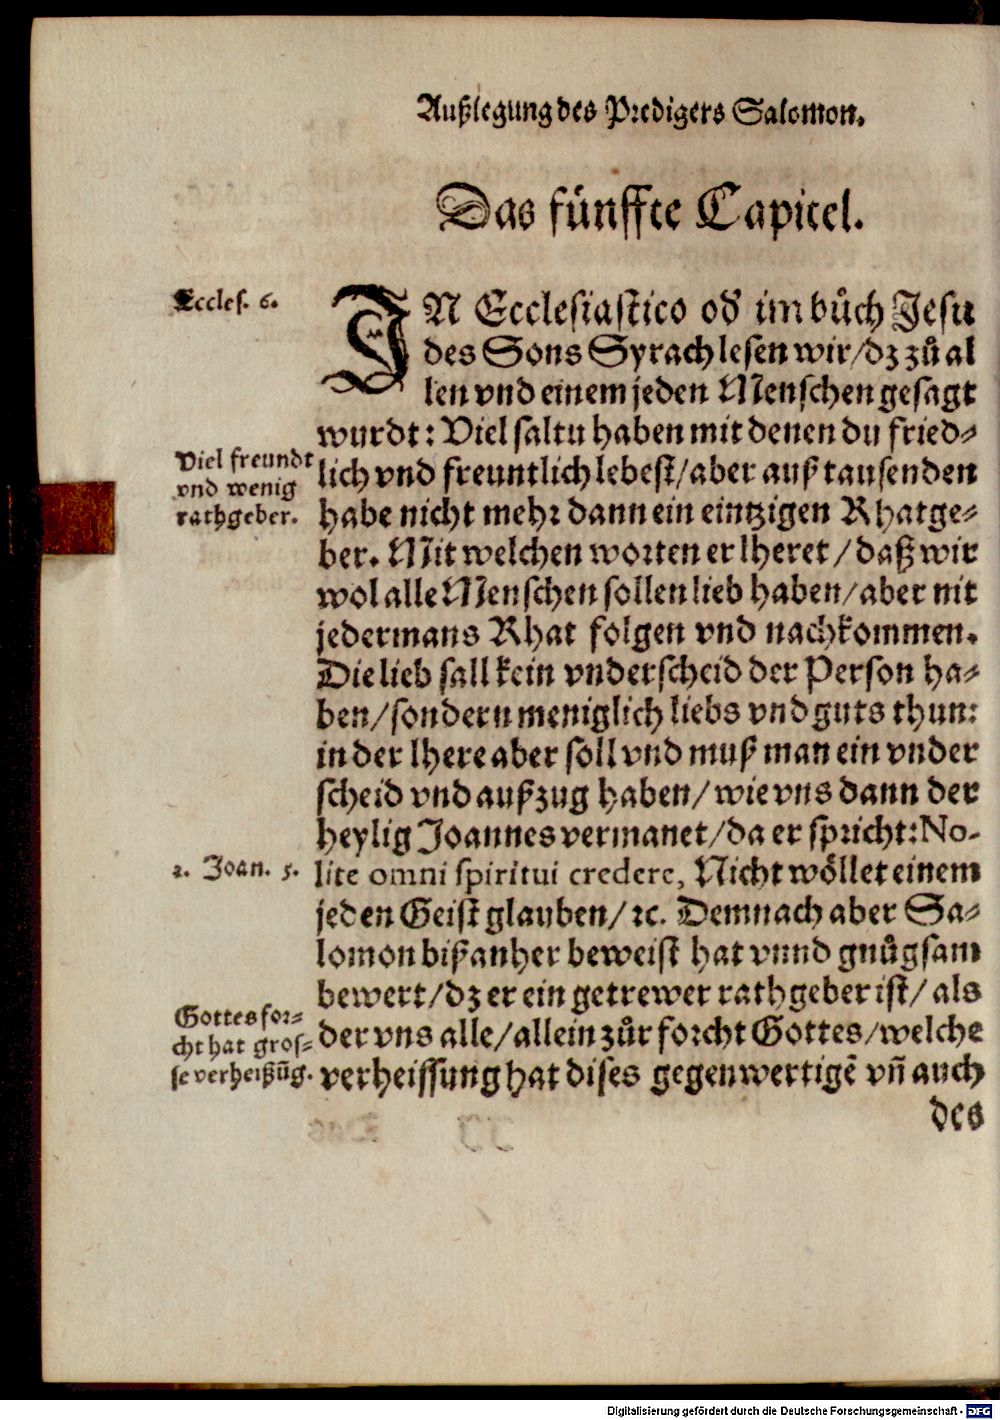 Außlegung des Predigers Salomon.
Das fünffte Capitel.
Eccles. 6.
IN Ecclesiastico od̃ im bůch Jesu
des Sons Syrach lesen wir/dz zů al
len vnd einem jeden Menschen gesagt
wurdt: Viel saltu haben mit denen du fried⸗
Viel freundt
vnd wenig
rathgeber.
lich vnd freuntlich lebest/aber auß tausenden
habe nicht mehr dann ein eintzigen Rhatge⸗
ber. Mit welchen worten er lheret/daß wir
wol alle Menschen sollen lieb haben/aber nit
jedermans Rhat folgen vnd nachkommen.
Die lieb sall kein vnderscheid der Person ha⸗
ben/sondern meniglich liebs vnd guts thun:
in der lhere aber soll vnd muß man ein vnder
scheid vnd außzug haben/wie vns dann der
heylig Joannes vermanet/da er spricht: No-
2. Joan. 5.
lite omni spiritui credere, Nicht wöllet einem
jeden Geist glauben/ꝛc. Demnach aber Sa⸗
lomon bißanher beweist hat vnnd gnůgsam
bewert/dz er ein getrewer rathgeber ist/als
Gottes for⸗
cht hat gros⸗
se verheißũg.
der vns alle/allein zůr forcht Gottes/welche
verheissung hat dises gegenwertigẽ vñ auch
des
Digitalisierung gefördert durch die Deutsche Forschungsgemeinschaft - DFG